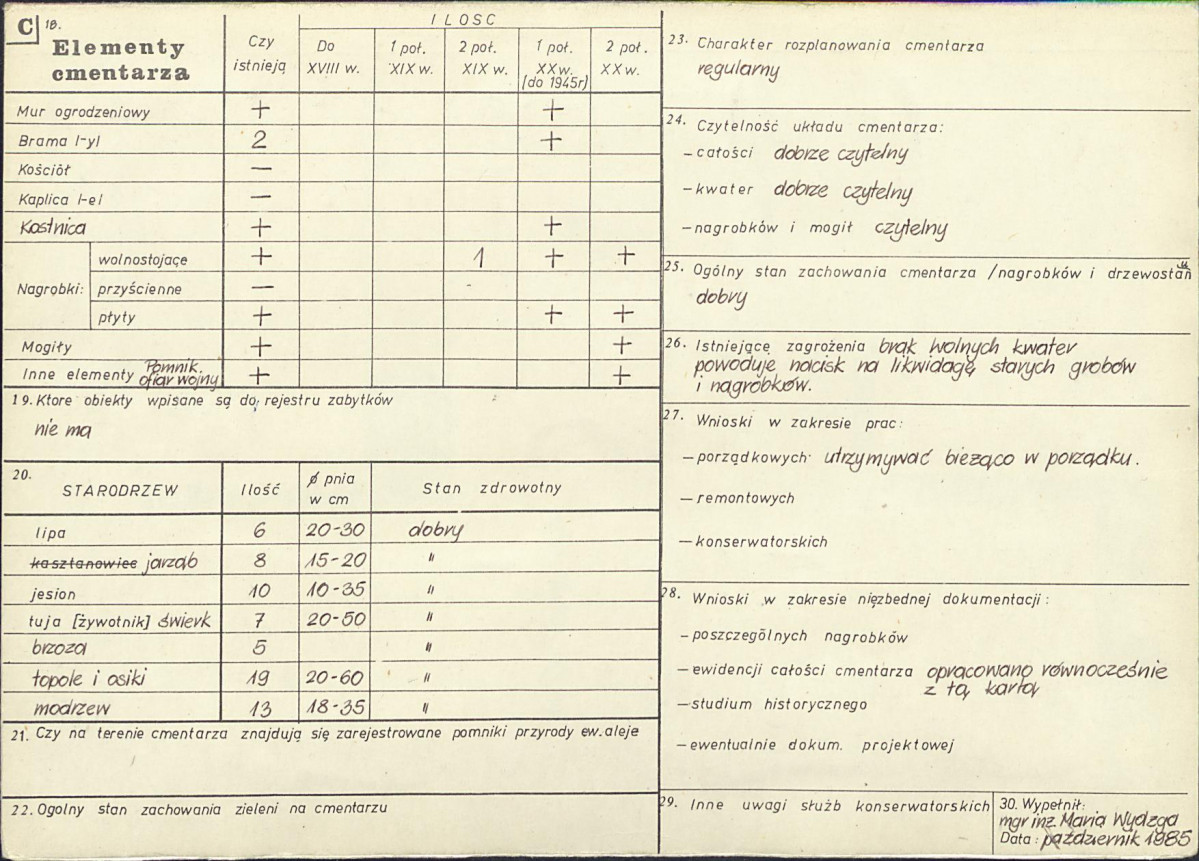 C 18.
Elementy
cmentarza
Czy
istnieją
ILOSC
Do
XVIII w.
1 poł.
XIX w.
2 poł.
XIX w.
1 poł.
XX w.
[do 1945r]
2 poł.
XX w.
Mur ogrodzeniowy + +
Brama l-yl 2 +
Kościół —
Kaplica l-el —
Kostnica + +
Nagrobki: wolnostojące + 1 + +
przyścienne —
płyty + + +
Mogiły + +
Inne elementy Pomnik.
ofiar wojny + +
19. Ktore obiekty wpisane są do rejestru zabytków
nie ma
20.
STARODRZEW Ilość ø pnia
w cm Stan zdrowotny
lipa 6 20-30 dobry
kasztanowiec jarząb 8 15-20 "
jesion 10 10-35 "
tuja [żywotnik] świerk 7 20-50 "
brzoza 5 "
topole i osiki 19 20-60 "
modrzew 13 18-35 "
21. Czy na terenie cmentarza znajdują się zarejestrowane pomniki przyrody ew. aleje
22. Ogolny stan zachowania zieleni na cmentarzu
23. Charakter rozplanowania cmentarza
regularny
24. Czytelność układu cmentarza:
- całości dobrze czytelny
- kwater dobrze czytelny
- nagrobków i mogił czytelny
25. Ogólny stan zachowania cmentarza /nagrobków i drzewostan
dobry
26. Istniejące zagrożenia brak wolnych kwater
powoduje nacisk na likwidację starych grobów
i nagrobków.
27. Wnioski w zakresie prac:
- porządkowych utrzymywać bieżąco w porządku.
- remontowych
- konserwatorskich
28. Wnioski w zakresie niezbędnej dokumentacji:
- poszczególnych nagrobków
- ewidencji całości cmentarza opracowano równocześnie
z tą kartą
- studium historycznego
- ewentualnie dokum. projektowej
29. Inne uwagi służb konserwatorskich
30. Wypełnił:
mgr inż. Maria Wydzga
Data: październik 1985